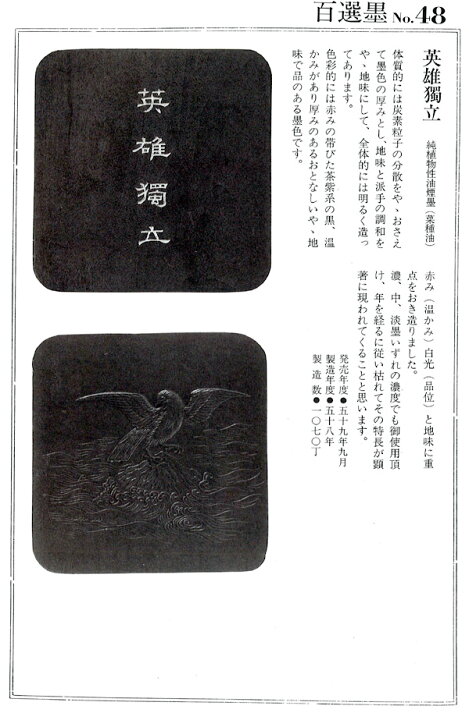 百選墨 No.48
英雄獨立 純植物性油煙墨(菜種油)
体質的には炭素粒子の分散をやゝおさえ
て墨色の厚みとし、地味と派手の調和を
やゝ地味にして、全体的には明るく造っ
てあります。
色彩的には赤みの帯びた茶紫系の黒、温
かみがあり厚みのあるおとなしいやゝ地
味で品のある墨色です。
赤み(温かみ)白光(品位)と地味に重
点をおき造りました。
濃、中、淡墨いずれの濃度でも御使用頂
け、年を経るに従い枯れてその特長が顕
著に現われてくることと思います。
発売年度●五十九年九月
製造年度●五十八年
製造数●一〇七〇丁
英雄獨立